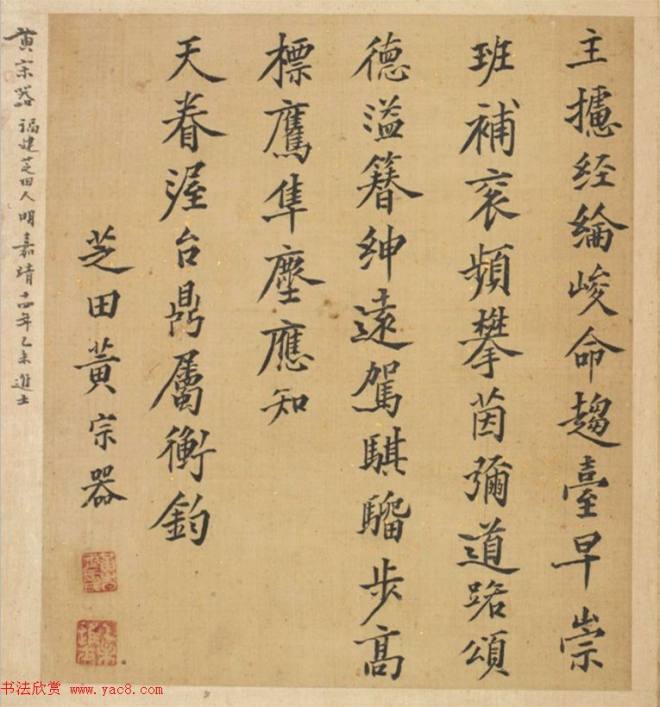 主攄經綸峻命趨臺早崇
班補衮頻攀茵彌道路頌
德溢簪紳遠駕騏騮步高
標鷹隼塵應知
天眷渥台鼎屬衡鈞
芝田黄宗器
黄宗器 福建芝田人明嘉靖十四年乙未進士
书法欣赏 www.yac8.com